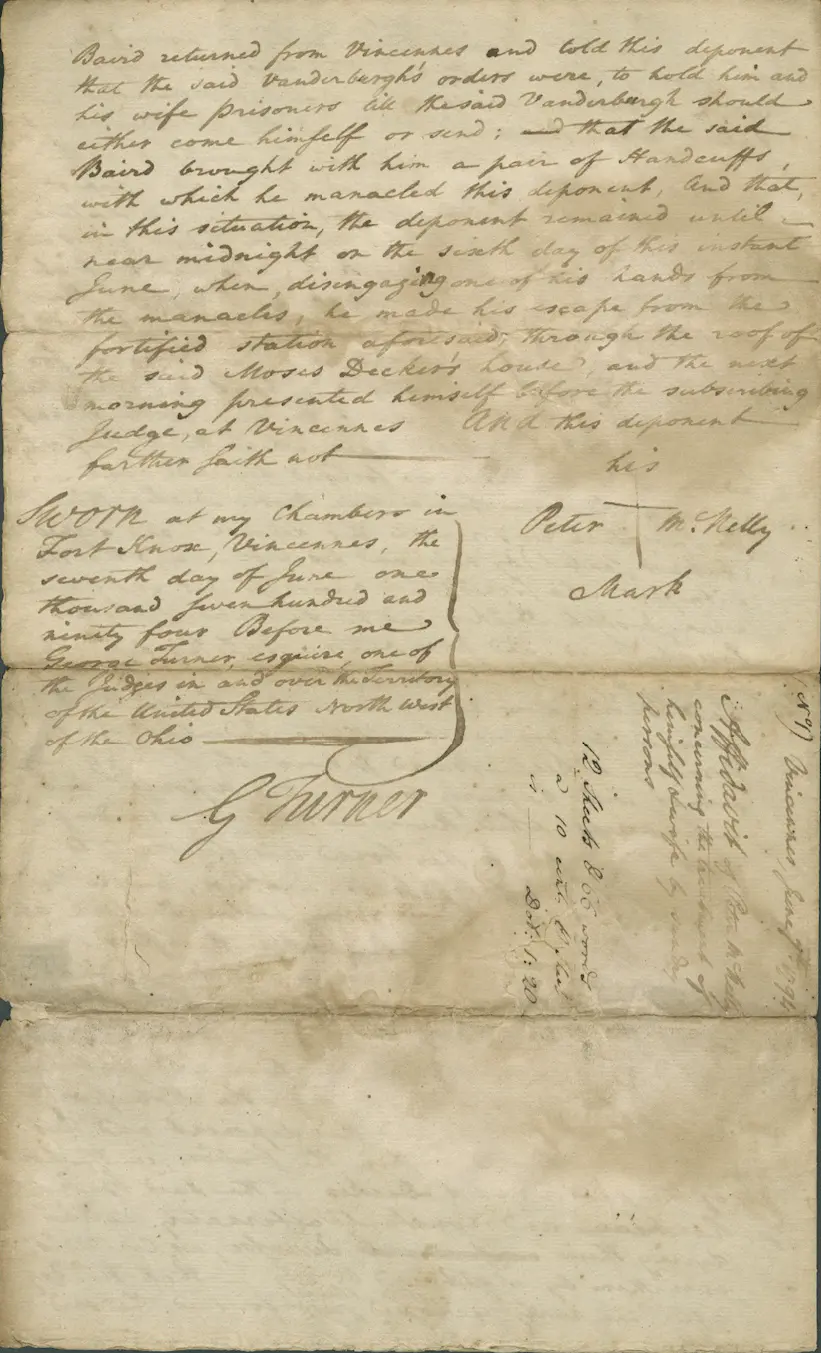 Baird returned from Vincennes and told this deponent
that the said Vanderburgh's orders were, to hold him and
his wife prisoners till the said Vanderburgh should
either come himself or send; and that the said
Baird brought with him a pair of Handcuffs,
with which he manacled this deponent, And that,
in this situation, the deponent remained until
near midnight on the sixth day of this instant
June, when, disengaging one of his hands from
the manacles, he made his escape from the
fortified station aforesaid, through the roof of
the said Moses Decker's house, and the next
morning presented himself before the subscribing
Judge, at Vincennes And this deponent
farther saith not
his
Peter McNelly
Mark
Sworn at my Chambers in
Fort Knox, Vincennes, the
seventh day of June one
thousand seven hundred and
ninety four Before me
George Turner, esquire, one of
the Judges in and over the Territory
of the United States North West
of the Ohio
G Turner
(No. 1) Vincennes, June 7th 1794
Affidavit of Peter McNelly
concerning the treatment of
himself & wife by sundry
persons
12 Sheets & 66 words
a 10 cents
is Dol: 1:20